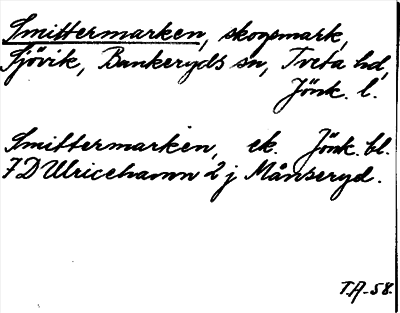 Smittermarken, skogsmark,
Sjövik, Bankeryds sn, Tveta hd,
Jönk. l.
Smittermarken, ek. Jönk. bl.
7 D Ulricehamn 2 j Månseryd.
T.A-58.